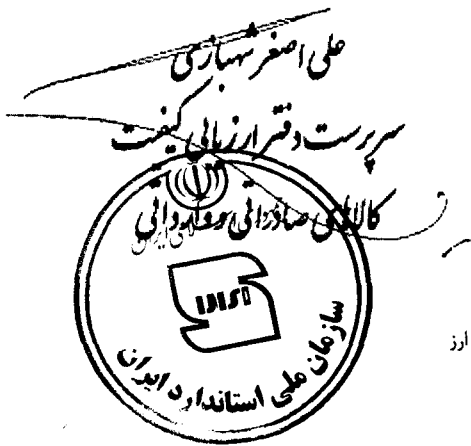 علی اصغر شهبازی
سرپرست دفتر ارزیابی کیفیت
کالاهای صادراتی و وارداتی
ایران
سازمان ملی استاندارد ایران
ارز